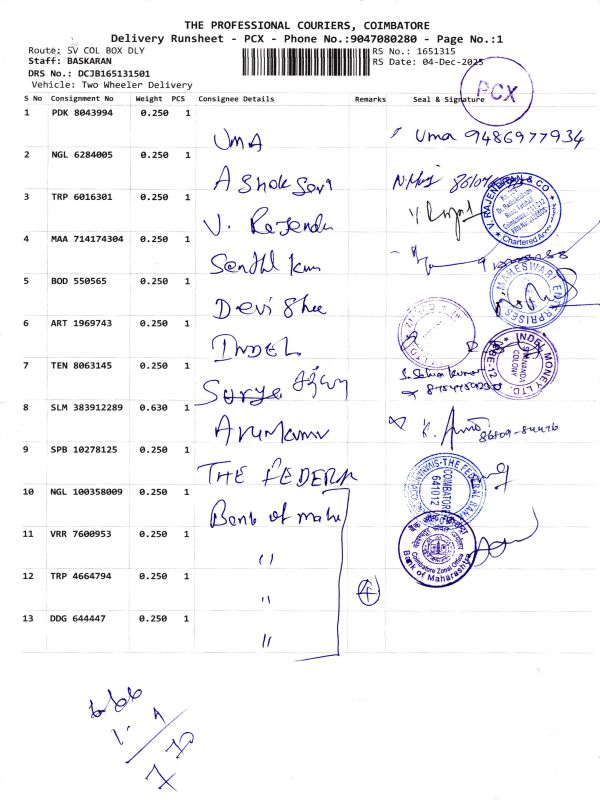 THE PROFESSIONAL COURIERS, COIMBATORE
Delivery Runsheet - PCX - Phone No.:9047080280 - Page No.:1
Route: SV COL BOX DLY
RS No.: 1651315
Staff: BASKARAN
RS Date: 04-Dec-2025
DRS No.: DCJB165131501
Vehicle: Two Wheeler Delivery
PCX
S No Consignment No Weight PCS Consignee Details Remarks Seal & Signature
1 PDK 8043994 0.250 1 UMA Uma 9486977934
2 NGL 6284005 0.250 1 Ashok
3 TRP 6016301 0.250 1 V. Rajendn
V. RAJENDRAN & CO
Chartered Accountants
4 MAA 714174304 0.250 1 Senthl Kum
5 BOD 550565 0.250 1 Devi Shee
MAHESWARI ENTERPRISES
6 ART 1969743 0.250 1 INDEL
INDEL MONEY LTD.
SIVANANDA COLONY
CBE-12
7 TEN 8063145 0.250 1 Surya
8 SLM 383912289 0.630 1 Arumamu
9 SPB 10278125 0.250 1 THE FEDERA
THE FEDERAL BANK
COIMBATORE
641012
10 NGL 100358009 0.250 1 Bank of maha
11 VRR 7600953 0.250 1 "
Coimbatore Zonal Office
Bank of Maharashtra
12 TRP 4664794 0.250 1 " 4
13 DDG 644447 0.250 1 "